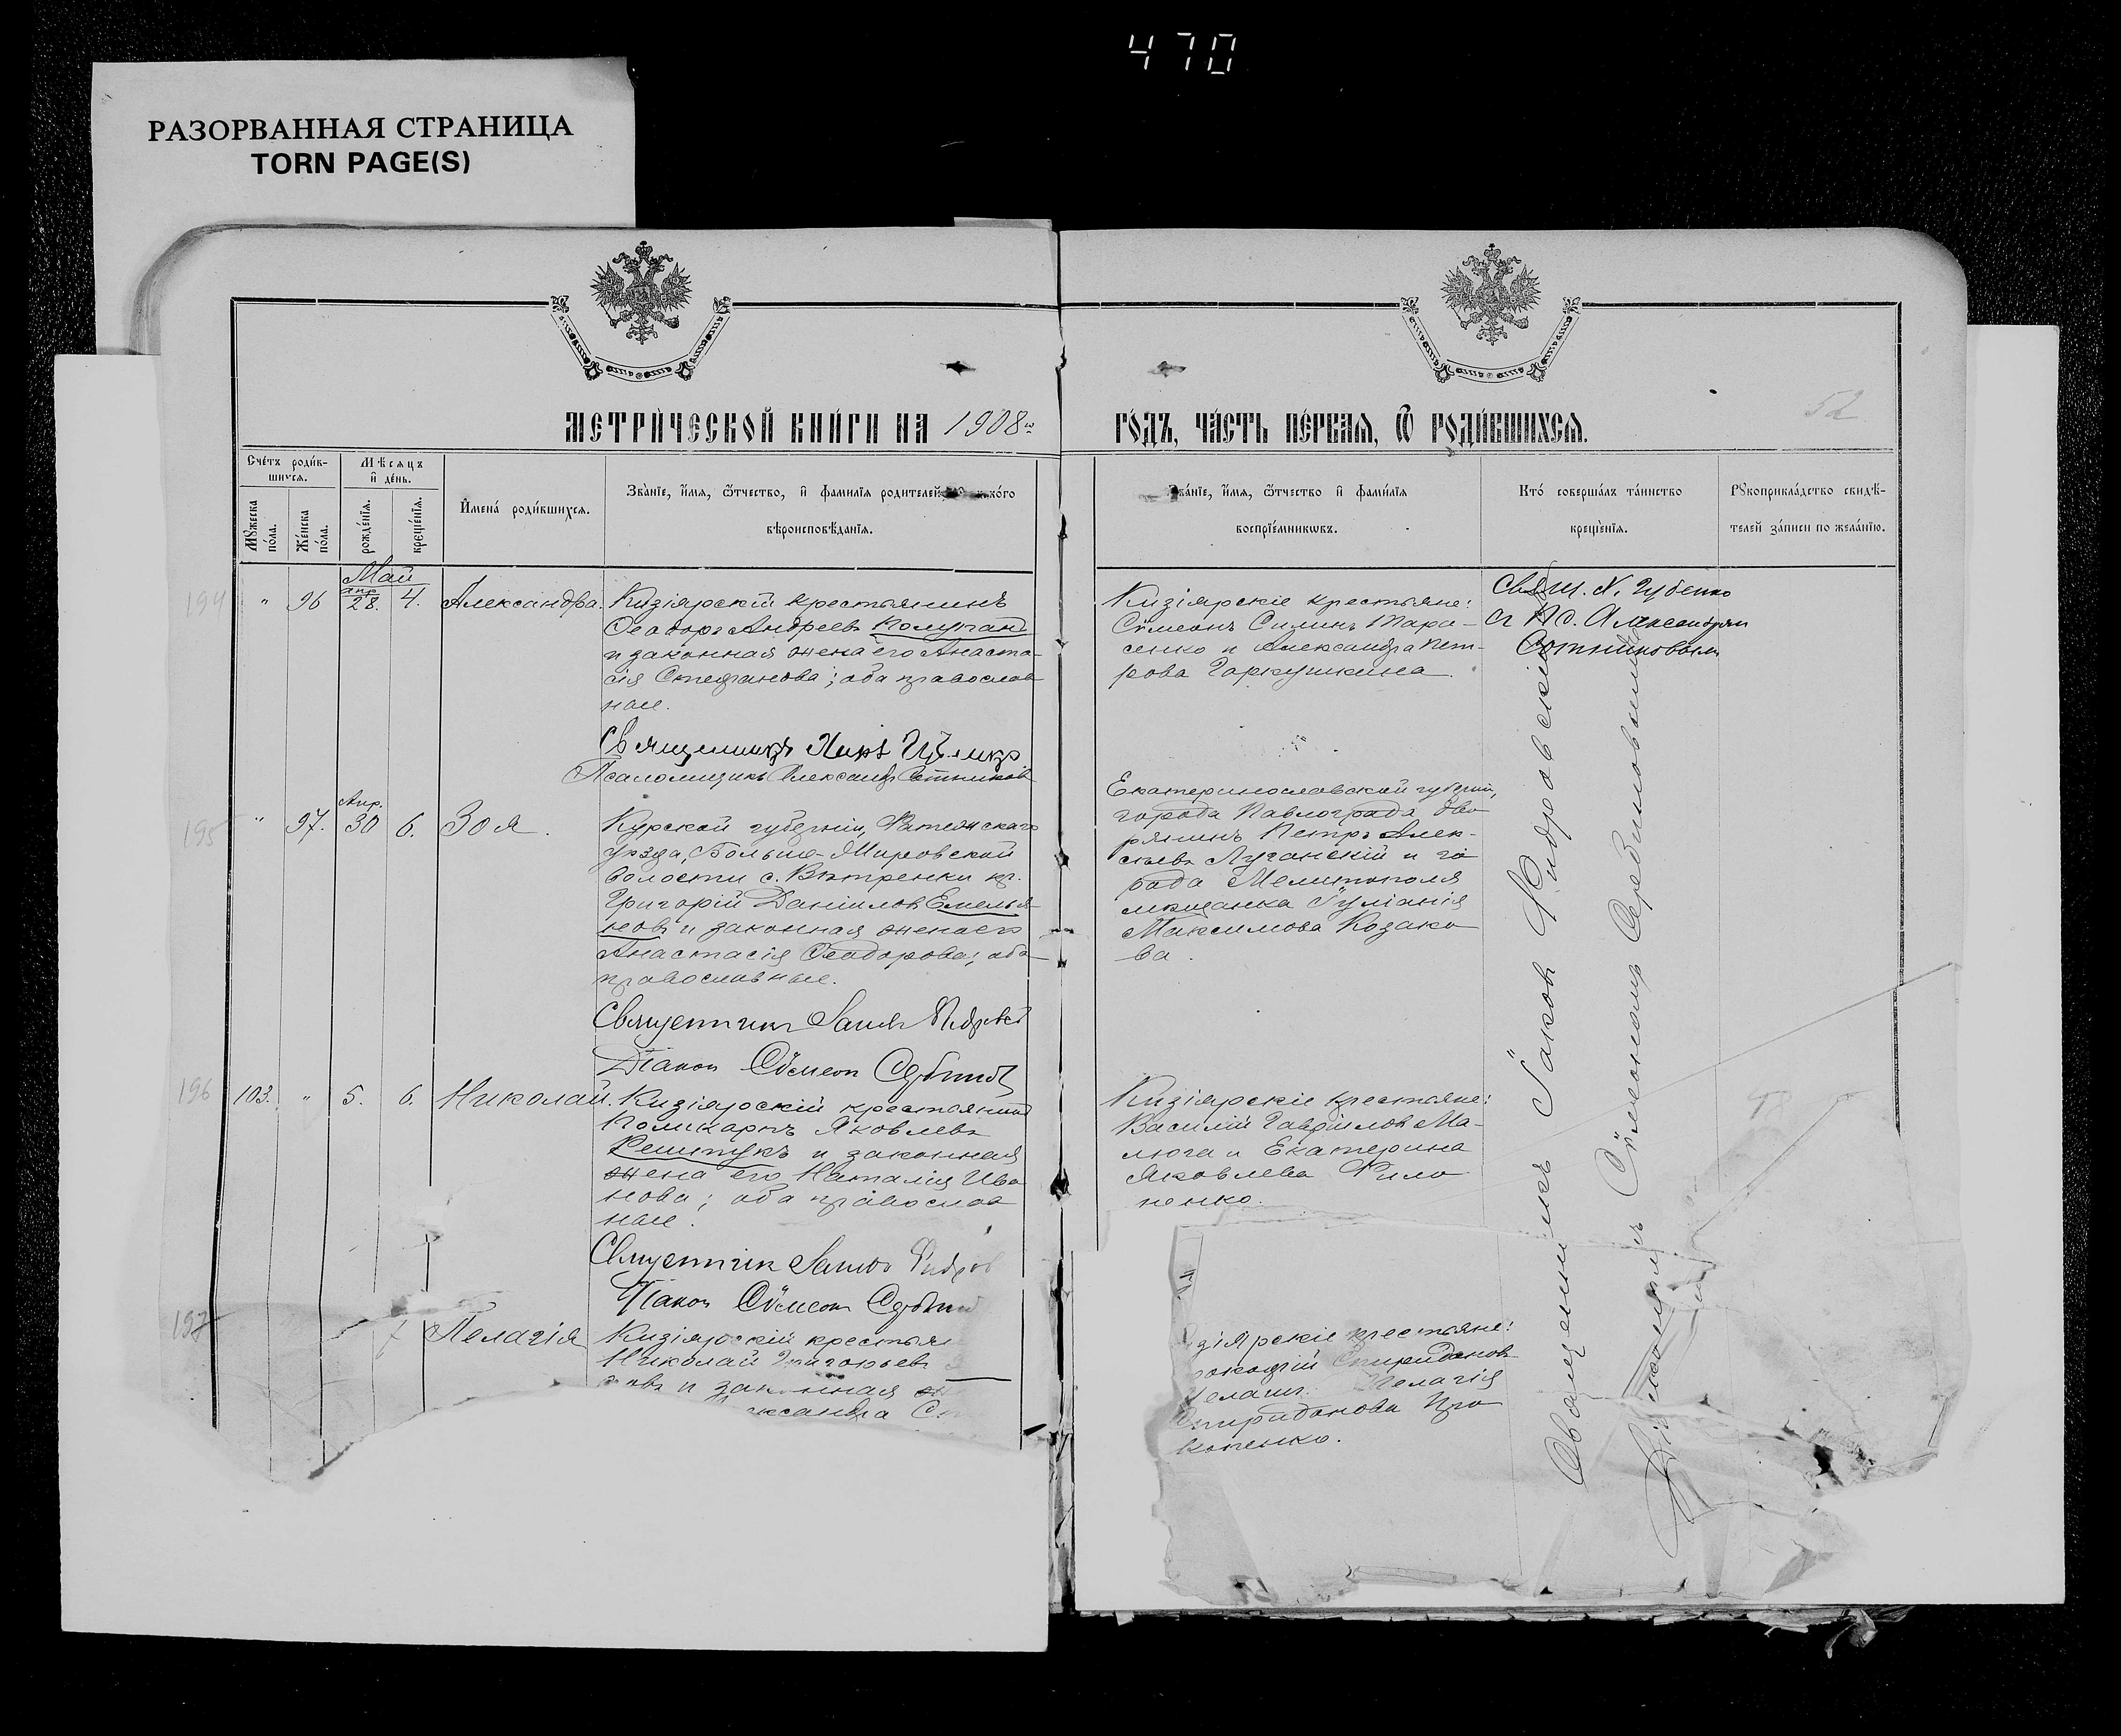 470
РАЗОРВАННАЯ СТРАНИЦА
TORN PAGE(S)
МЕТРИЧЕСКОЙ КНИГИ НА 1908й
ГОДЪ, ЧАСТЬ ПЕРВАЯ, Ѿ РОДИВШИХСЯ.
52
Счетъ родив-
шихся.
Мѣсяцъ
и день.
Мужеска
пола.
Женска
пола.
рожденія.
крещенія.
Имена родившихся.
Званіе, имя, ѿтчество, и фамилія родителей
вѣроисповѣданія.
Званіе, имя, ѿтчество и фамилія
воспріемниковъ.
Кто совершалъ таинство
крещенія.
Рукоприкладство свидѣ-
телей записи по желанію.
Май
194 " 96 апр. 28. 4. Александра.
Кизіярскій крестьянинъ
Ѳеодоръ Андреевъ
и законная жена его Анаста-
сія Стефанова; оба православ
ные.
Священникъ
Псаломщикъ Александръ Сотниковъ
Кизіярскіе крестьяне:
Сѵмеонъ Силинъ Тара-
сенко и Александра Пет-
рова Гаркушкина.
Свящ. Н. Губенко
съ Пс. Александром
Сотниковым
195 " 97. Апр. 30 6. Зоя.
Курской губерніи, Фатежскаго
уѣзда, Больше-Жировской
волости с. Вѣтренки кр.
Григорій Даніиловъ Емелья-
новъ и законная жена его
Анастасія Ѳеодорова; оба
православные.
Священникъ Іаковъ
Діаконъ Сѵмеонъ
Екатеринославской губерніи,
города Павлограда дво
рянинъ Петръ Алек-
сѣевъ Луганскій и го
рода Мелитополя
мѣщанка Іуліанія
Максимова Козако
ва.
196 103. " 5. 6. Николай.
Кизіярскій крестьянинъ
Поликарпъ Яковлевъ
Решетукъ и законная
жена его Наталія Ива
нова; оба православ
ные.
Священникъ Іаковъ
Діаконъ Сѵмеонъ
Кизіярскіе крестьяне:
Василій Гавріиловъ Ма-
люга и Екатерина
Яковлева Фило
ненко.
197 Пелагія
Кизіярскій крестьян
Николай Григорьевъ
овъ и законная ж
ександра С
зіярскіе крестьяне:
рокофій Спиридоновъ
Пелагія
Спиридонова Про
копенко.
Священникъ Іаковъ
Сѵмеономъ